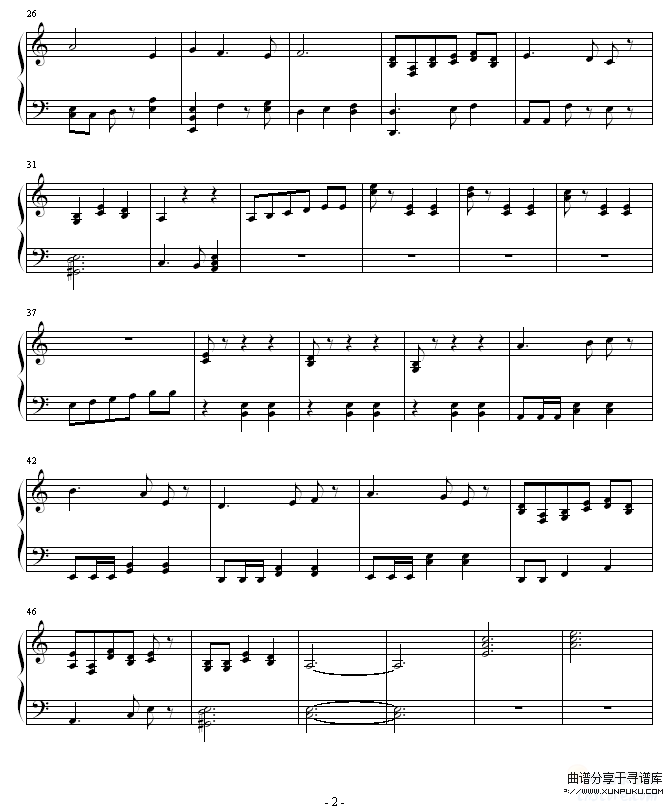 26
31
37
42
46
- 2 -
曲谱分享于寻谱库
://www.XUNPUKU.COM